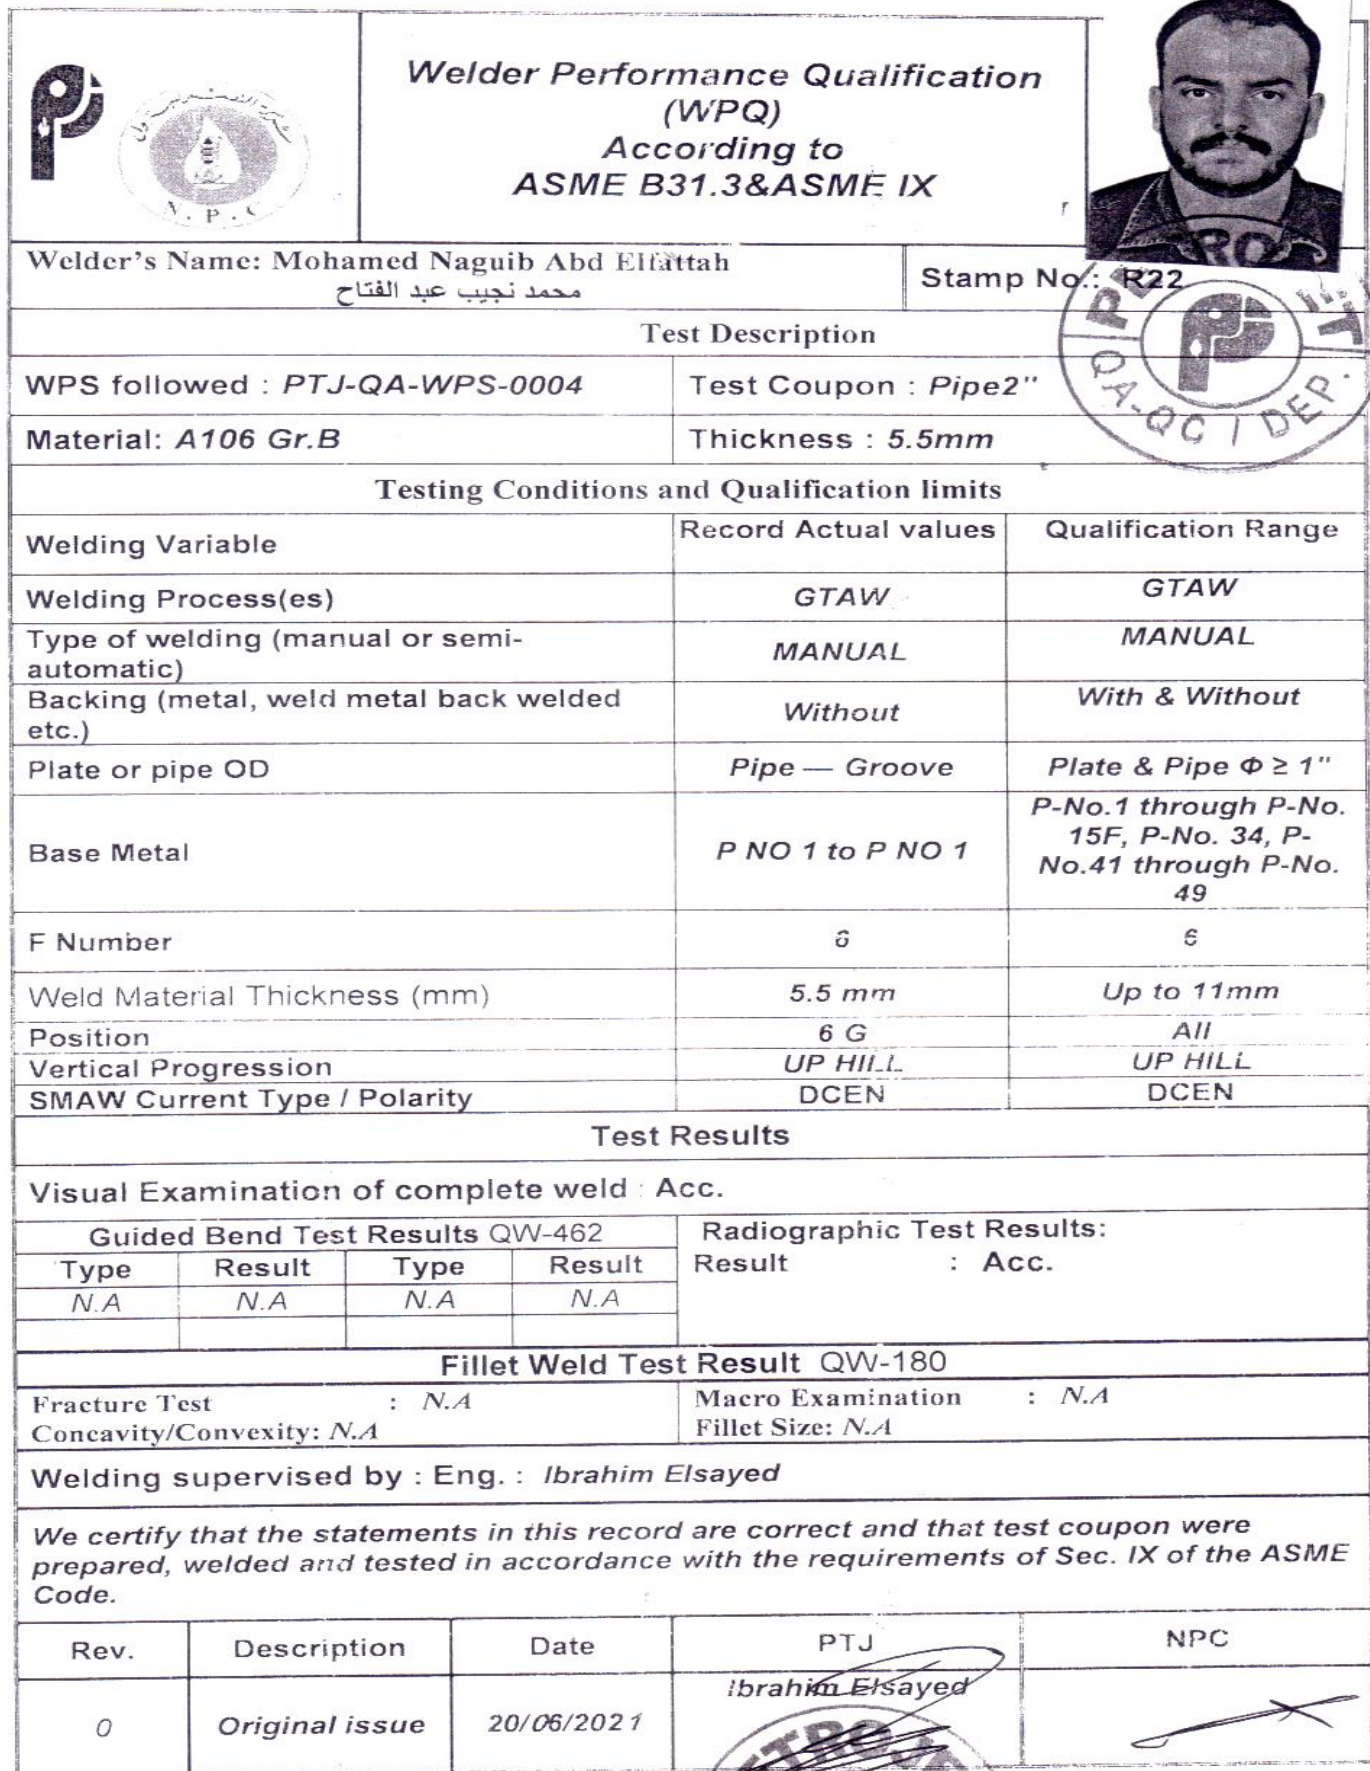 Welder Performance Qualification
(WPQ)
According to
ASME B31.3&ASME IX
N.P.C
Welder's Name: Mohamed Naguib Abd Elfattah
محمد نجيب عبد الفتاح
Stamp No.: R22
QA-QC / DEP.
Test Description
WPS followed : PTJ-QA-WPS-0004
Test Coupon : Pipe2"
Material: A106 Gr.B
Thickness : 5.5mm
Testing Conditions and Qualification limits
Welding Variable
Record Actual values
Qualification Range
Welding Process(es)
GTAW
GTAW
Type of welding (manual or semi-
automatic)
MANUAL
MANUAL
Backing (metal, weld metal back welded
etc.)
Without
With & Without
Plate or pipe OD
Pipe — Groove
Plate & Pipe Φ ≥ 1"
Base Metal
P NO 1 to P NO 1
P-No.1 through P-No.
15F, P-No. 34, P-
No.41 through P-No.
49
F Number
6
6
Weld Material Thickness (mm)
5.5 mm
Up to 11mm
Position
6 G
All
Vertical Progression
UP HILL
UP HILL
SMAW Current Type / Polarity
DCEN
DCEN
Test Results
Visual Examination of complete weld : Acc.
Guided Bend Test Results QW-462
Radiographic Test Results:
Type Result Type Result
Result : Acc.
N.A N.A N.A N.A
Fillet Weld Test Result QW-180
Fracture Test : N.A
Macro Examination : N.A
Concavity/Convexity: N.A
Fillet Size: N.A
Welding supervised by : Eng. : Ibrahim Elsayed
We certify that the statements in this record are correct and that test coupon were
prepared, welded and tested in accordance with the requirements of Sec. IX of the ASME
Code.
Rev. Description Date PTJ NPC
0 Original issue 20/06/2021 Ibrahim Elsayed